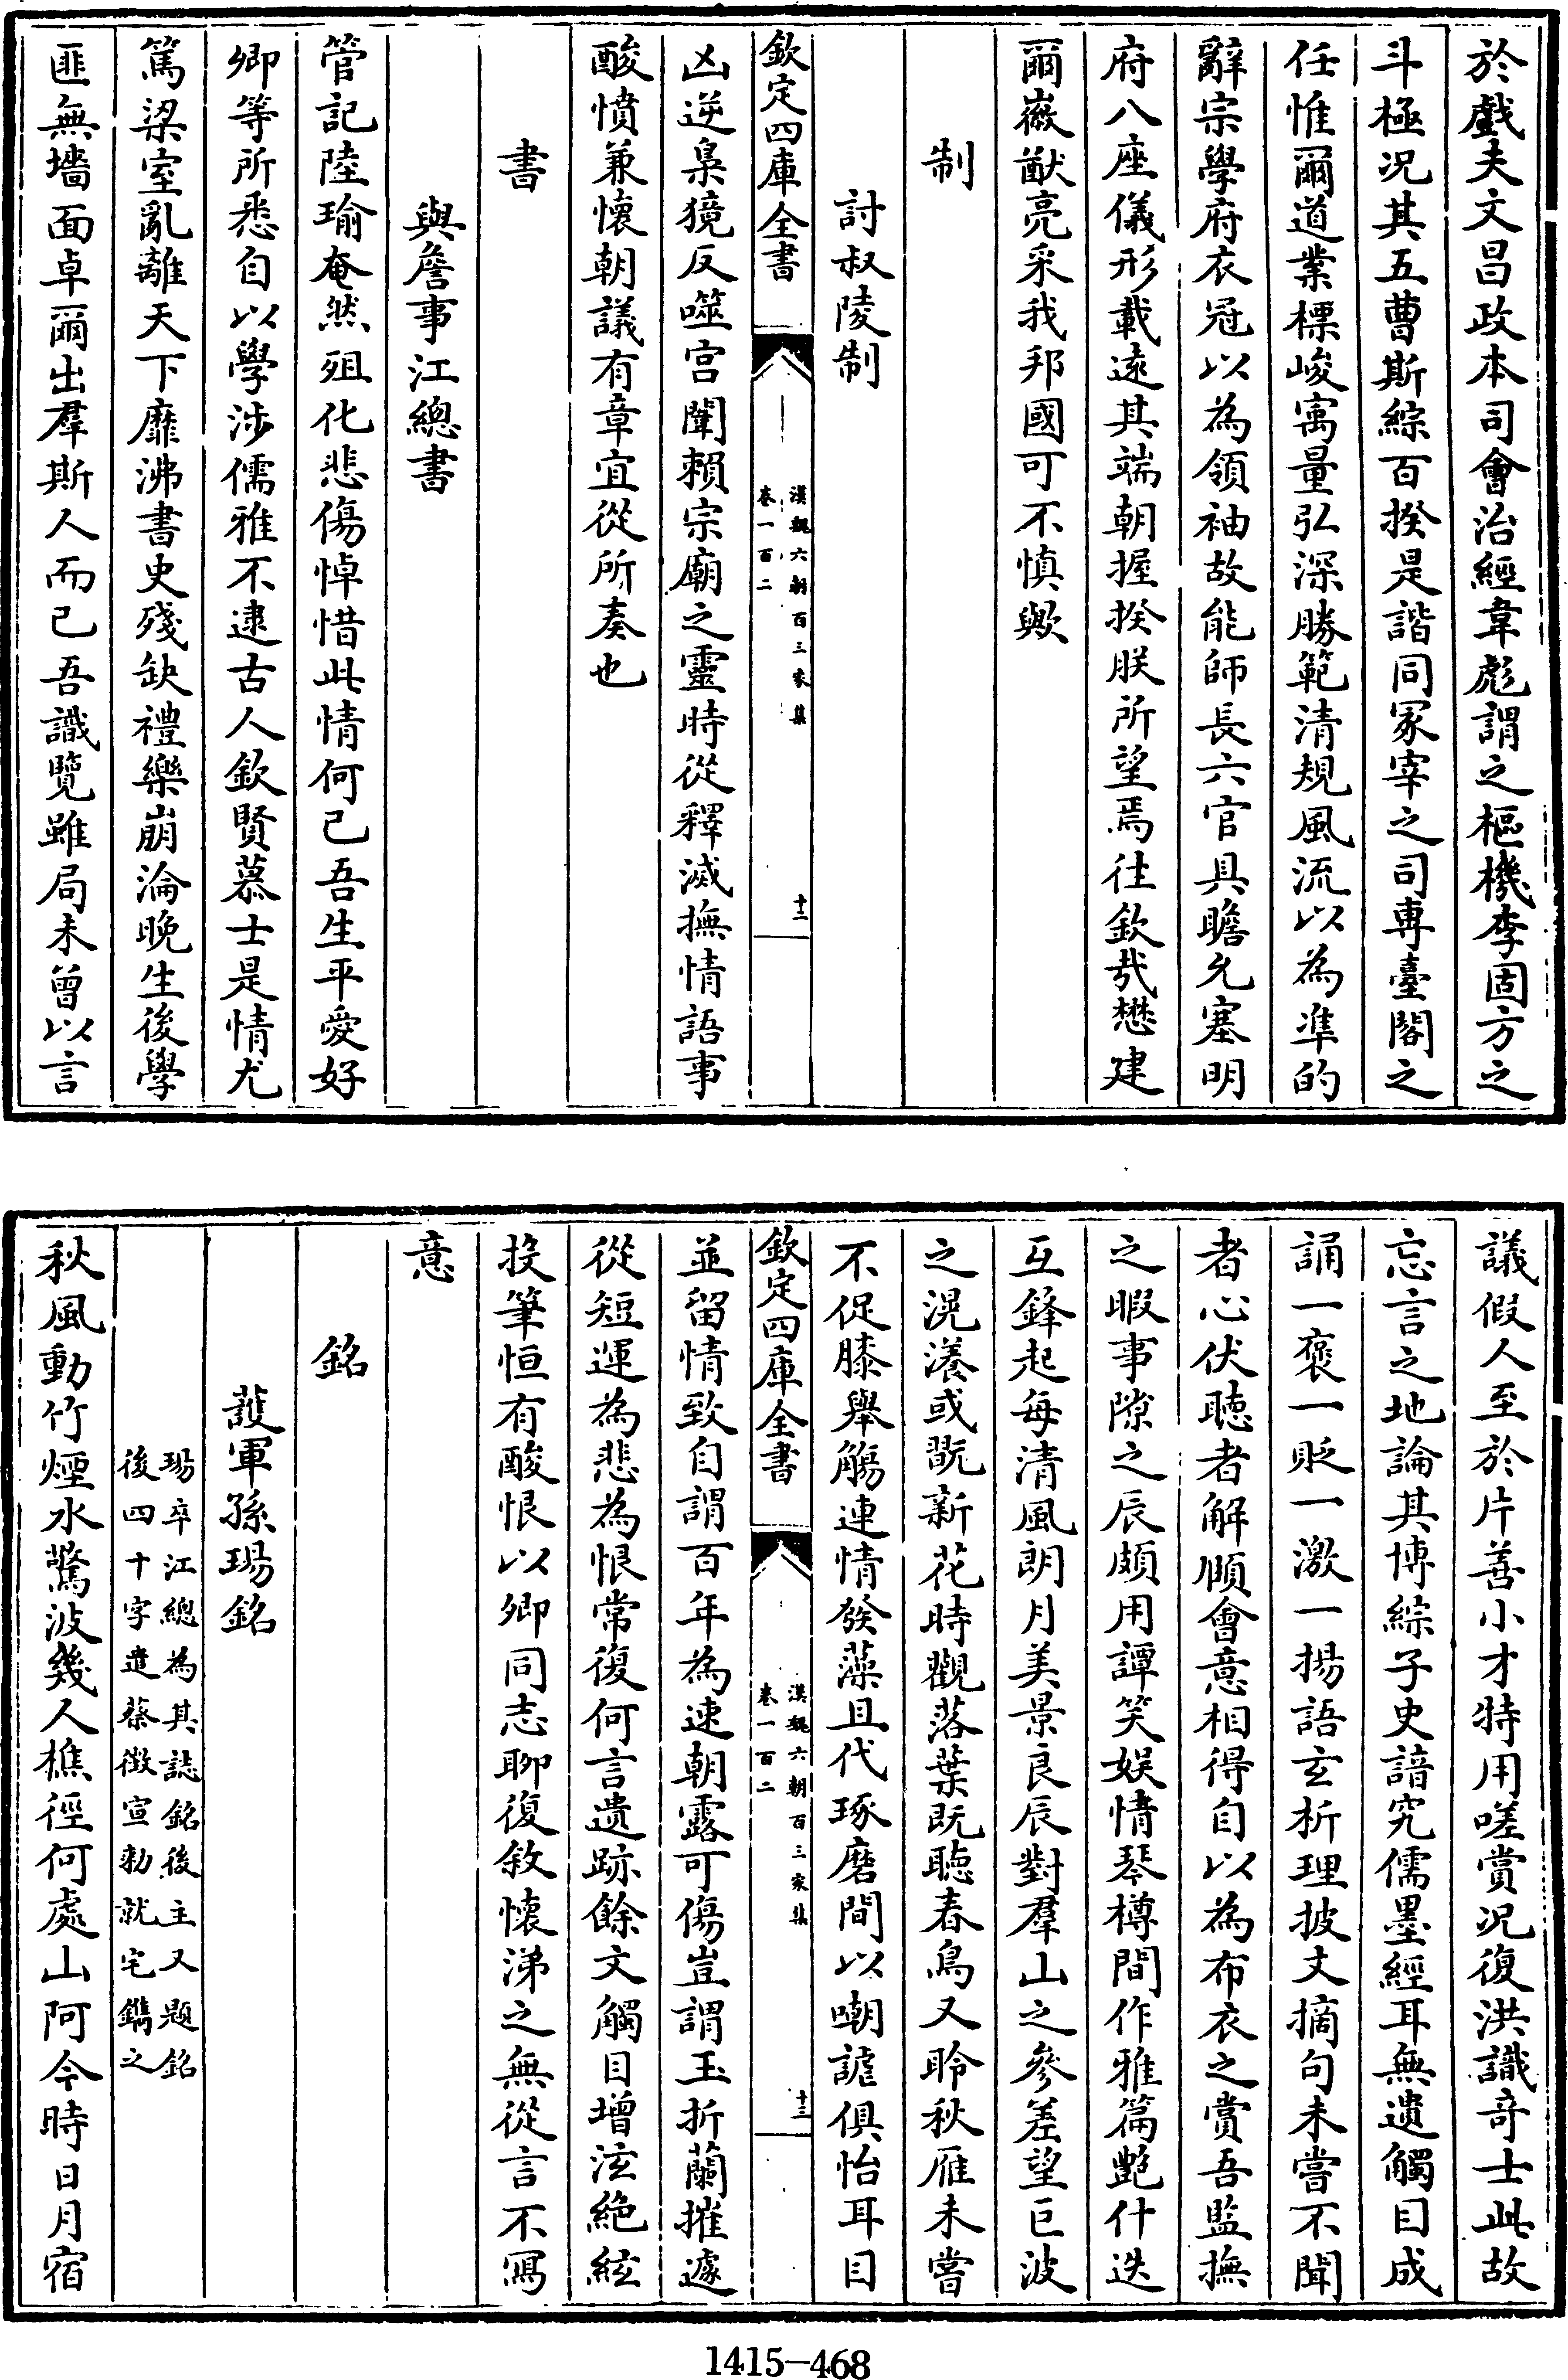 於戲夫文昌政本司會治經韋彪謂之樞機李固方之
斗極况其五曹斯綜百揆是諧同冢宰之司專臺閣之
任惟爾道業標峻寓量弘深勝範清規風流以為凖的
辭宗學府衣冠以為領袖故能師長六官具瞻允塞明
府八座儀形載遠其端朝握揆朕所望焉往欽哉懋建
爾嶶猷亮采我邦國可不慎歟
制
討叔陵制
欽定四庫全書
漢魏六朝百三家集
卷一百二
十二
凶逆梟獍反噬宫闈賴宗廟之靈時從釋滅撫情語事
酸憤兼懷朝議有章宜從所奏也
書
與詹事江總書
管記陸瑜奄然殂化悲傷悼惜此情何已吾生平愛好
卿等所悉自以學涉儒雅不逮古人欽賢慕士是情尤
篤梁室亂離天下靡沸書史殘缺禮樂崩淪晚生後學
匪無墻面卓爾出羣斯人而已吾識覽雖局未曾以言
議假人至於片善小才特用嗟賞况復洪識竒士此故
忘言之地論其博綜子史諳究儒墨經耳無遺觸目成
誦一褒一貶一激一揚語玄析理披文摘句未嘗不聞
者心伏聽者解頤會意相得自以為布衣之賞吾監撫
之暇事隙之辰頗用譚笑娱情琴樽間作雅篇艷什迭
互鋒起每清風朗月美景良辰對羣山之參差望巨波
之滉瀁或翫新花時觀落葉既聽春鳥又聆秋雁未嘗
不促膝舉觴連情發藻且代琢磨間以嘲謔俱怡耳目
欽定四庫全書
漢魏六朝百三家集
卷一百二
十三
並留情致自謂百年為速朝露可傷豈謂玉折蘭摧遽
從短運為悲為恨常復何言遺跡餘文觸目增泫絶絃
投筆恒有酸恨以卿同志聊復敘懷涕之無從言不寫
意
銘
護軍孫瑒銘
瑒卒江總為其誌銘後主又題銘
後四十字遣蔡徴宣勅就宅鐫之
秋風動竹煙水驚波幾人樵徑何處山阿今時日月宿
1415-468